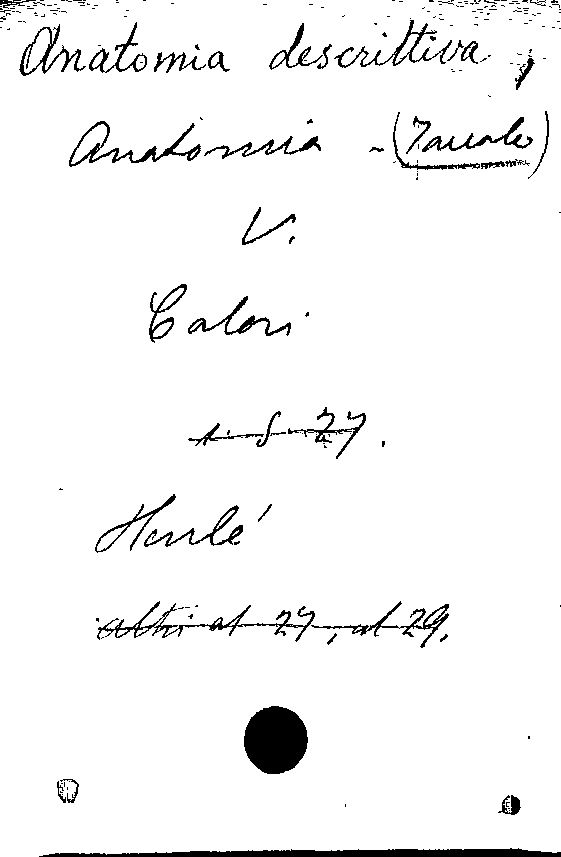 Anatomia descrittiva,
Anatomia - (Tavole)
V.
Calori
1. S. 27.
Henlé
altri al 27, al 29.